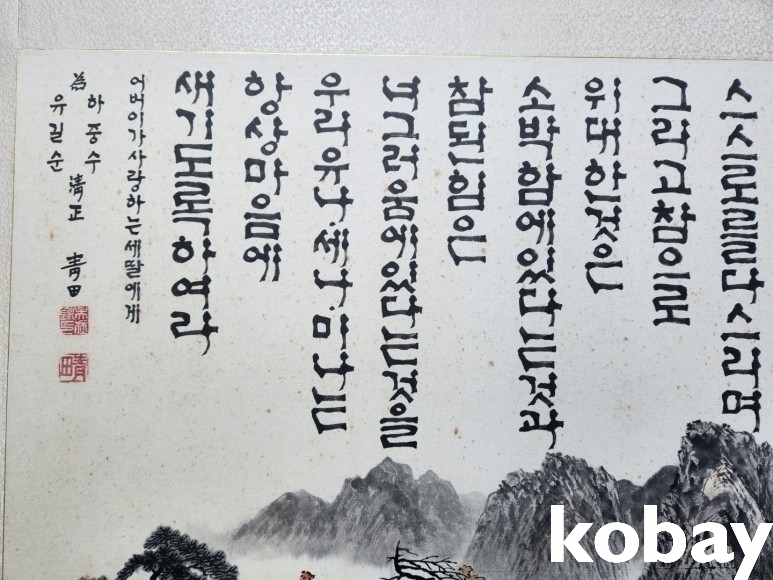 스스로를다스리며
그리고참으로
위대한것은
소박함에있다는것과
참된힘은
너그러움에있다는것을
우리유나·세나·미나는
항상마음에
새기도록하여라
어버이가사랑하는세딸에게
為 하중수 清正 青田
유길순
kobay